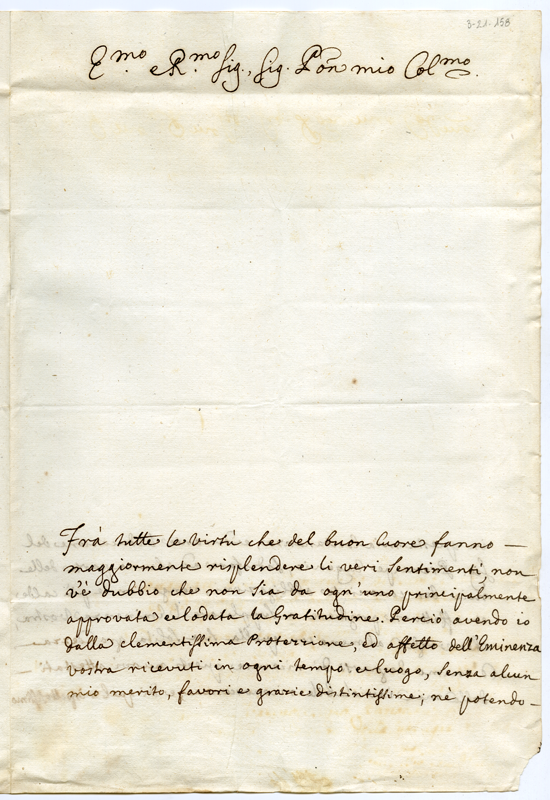 3-21-158
E.mo e R.mo Sig., Sig. P̃on mio Col.mo
Frà tutte le virtù che del buon Cuore fanno —
maggiormente risplendere li veri Sentimenti, non
v'è dubbio che non sia da ogn'uno principalmente
approvata e lodata la Gratitudine. Perciò avendo io
dalla clementissima Protezzione, ed affetto dell'Eminenza
vostra ricevuti in ogni tempo e luogo, senza alcun
mio merito, favori e grazie distintissime; nè potendo -